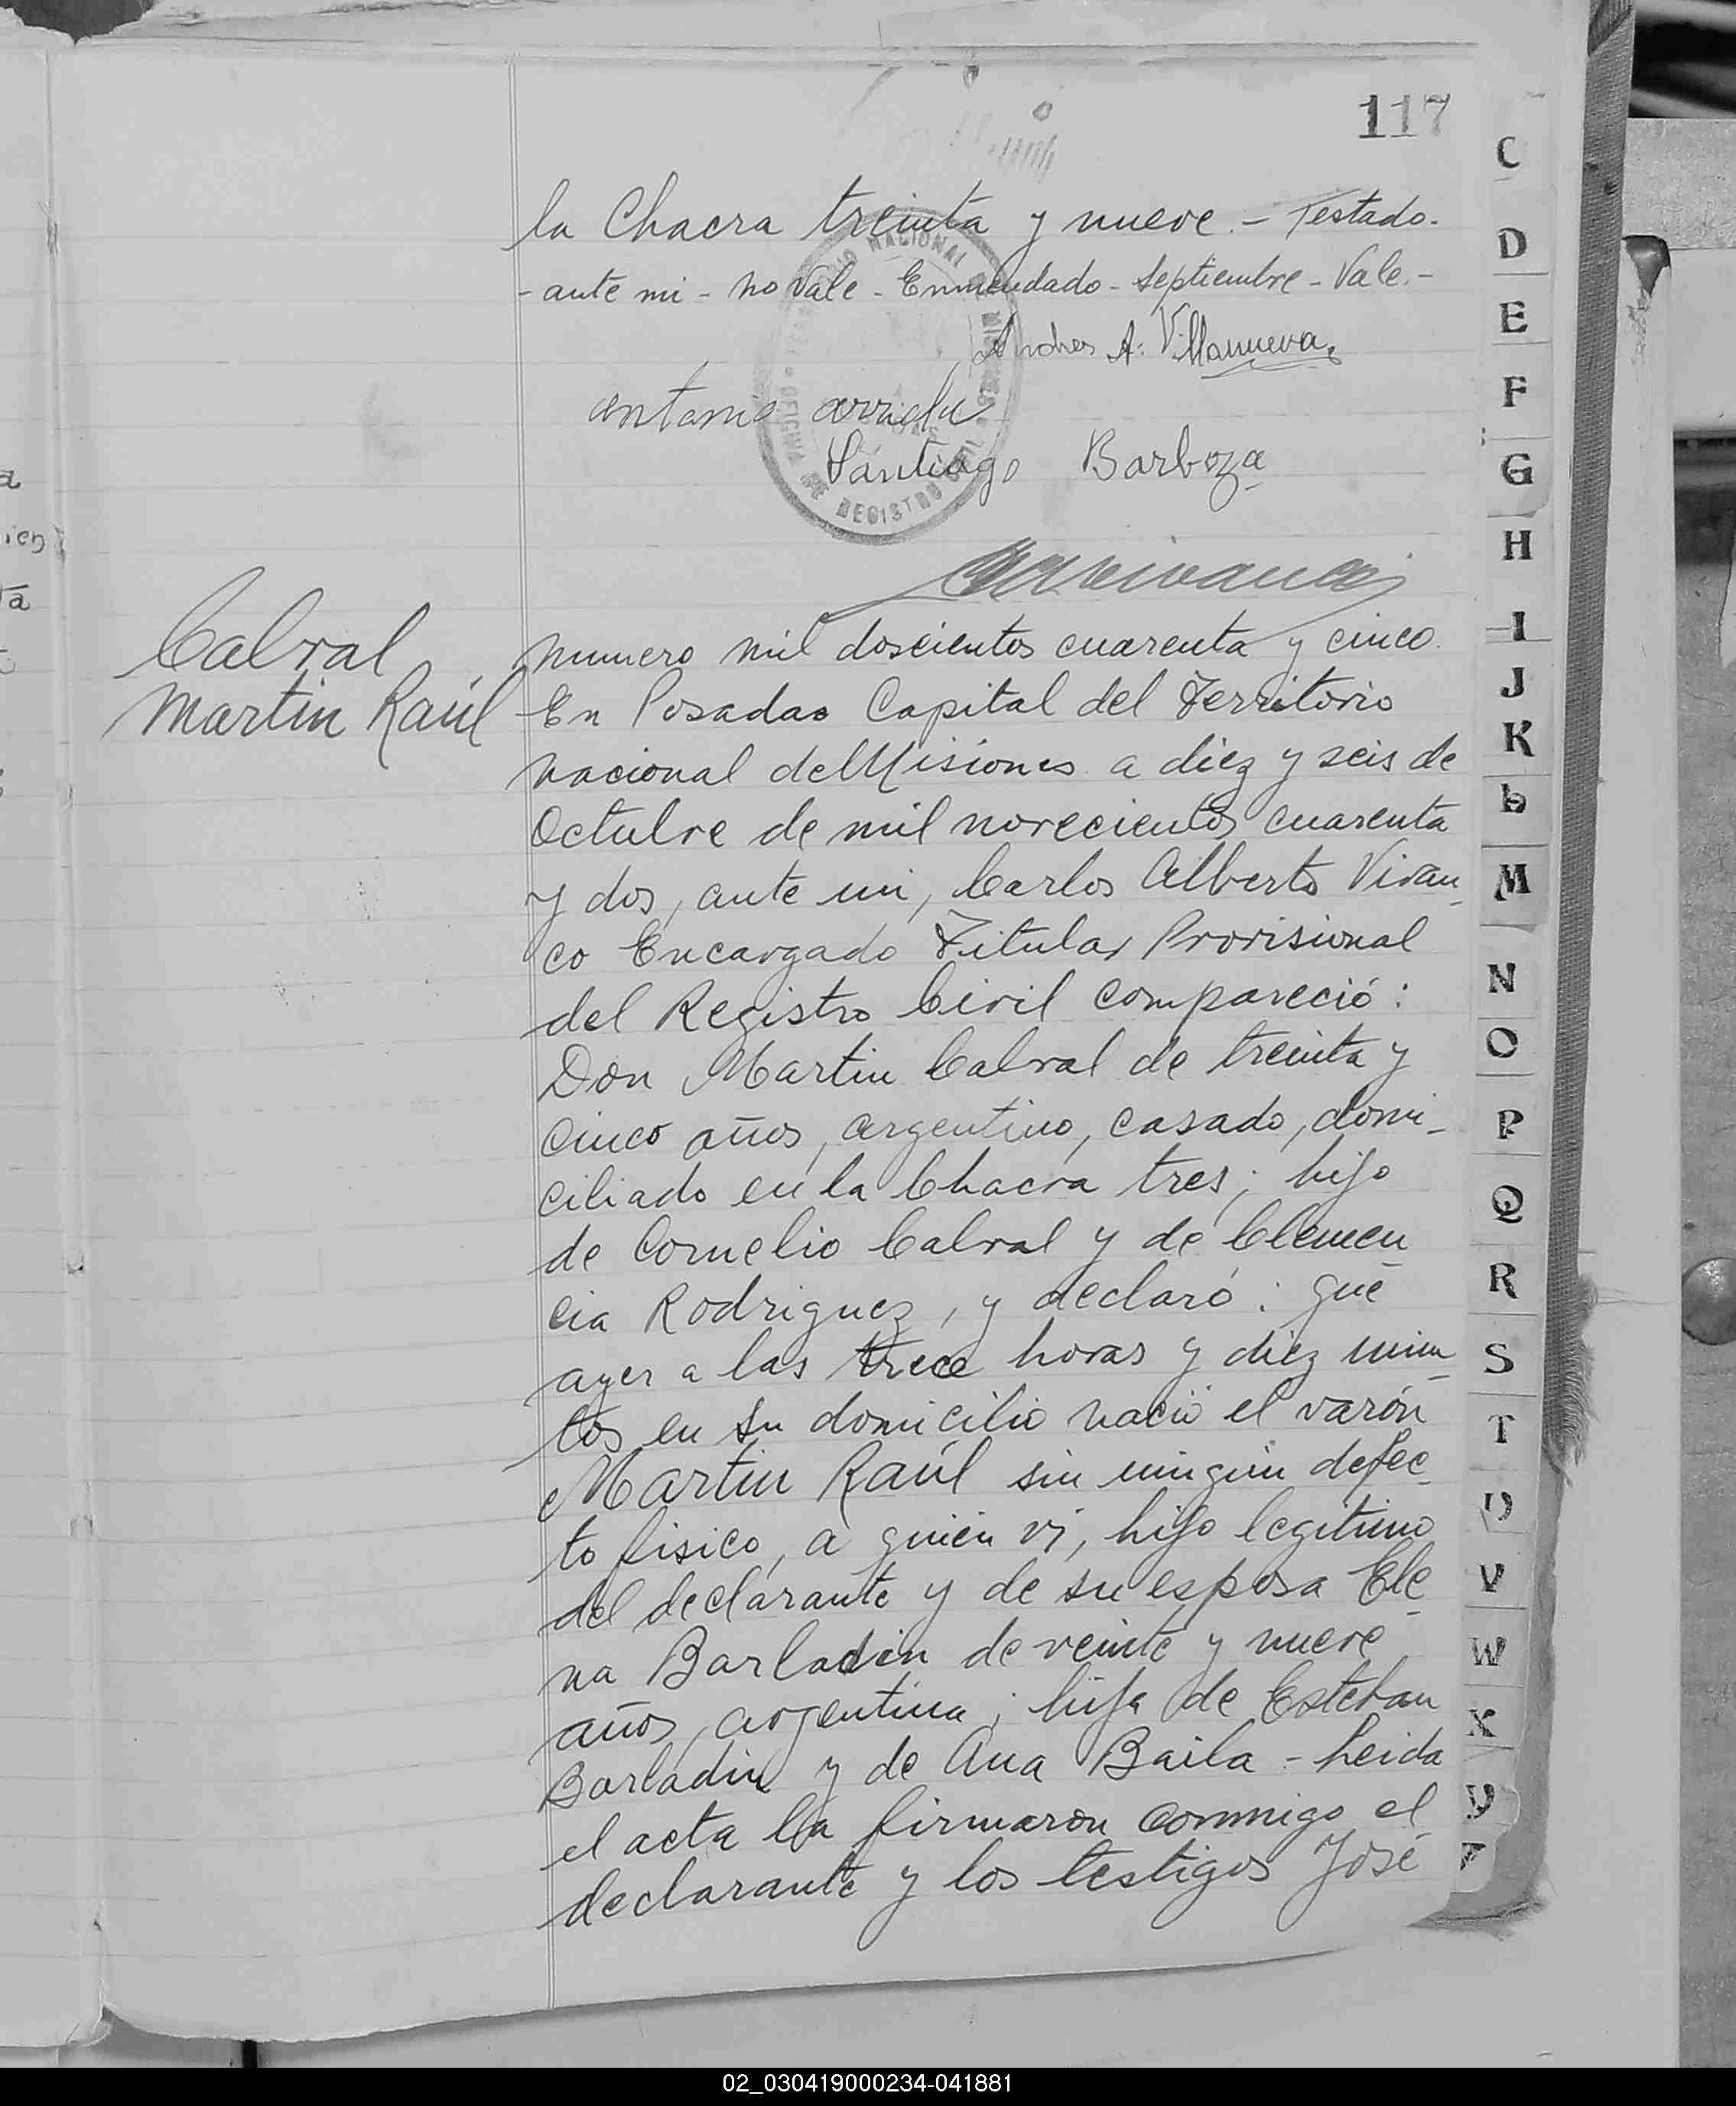 117
la Chacra treinta y nueve. - Testado.
- ante mi - no vale - Enmendado - Septiembre - Vale. -
Andres A. Villanueva
antonio arrieta
Santiago Barboza
TERRITORIO NACIONAL DE MISIONES
OFICINA DE REGISTRO CIVIL
Cabral
Martin Raúl
numero mil doscientos cuarenta y cinco.
En Posadas Capital del Territorio
nacional de Misiones a diez y seis de
Octubre de mil novecientos cuarenta
y dos, ante mi, Carlos Alberto Vivan_
co Encargado Titular Provisional
del Registro Civil compareció:
Don Martin Cabral de treinta y
cinco años, argentino, casado, domi_
ciliado en la Chacra tres; hijo
de Cornelio Cabral y de Clemen_
cia Rodriguez, y declaró: que
ayer a las trece horas y diez minu_
tos en su domicilio nació el varón
Martin Raúl sin ningún defec_
to fisico, a quien vi, hijo legitimo
del declarante y de su esposa Ele_
na Barladin de veinte y nueve
años, argentina; hija de Esteban
Barladin y de Ana Baila - Leida
el acta la firmaron conmigo el
declarante y los testigos José
C
D
E
F
G
H
I
J
K
L
M
N
O
P
Q
R
S
T
U
V
W
X
Y
02_030419000234-041881